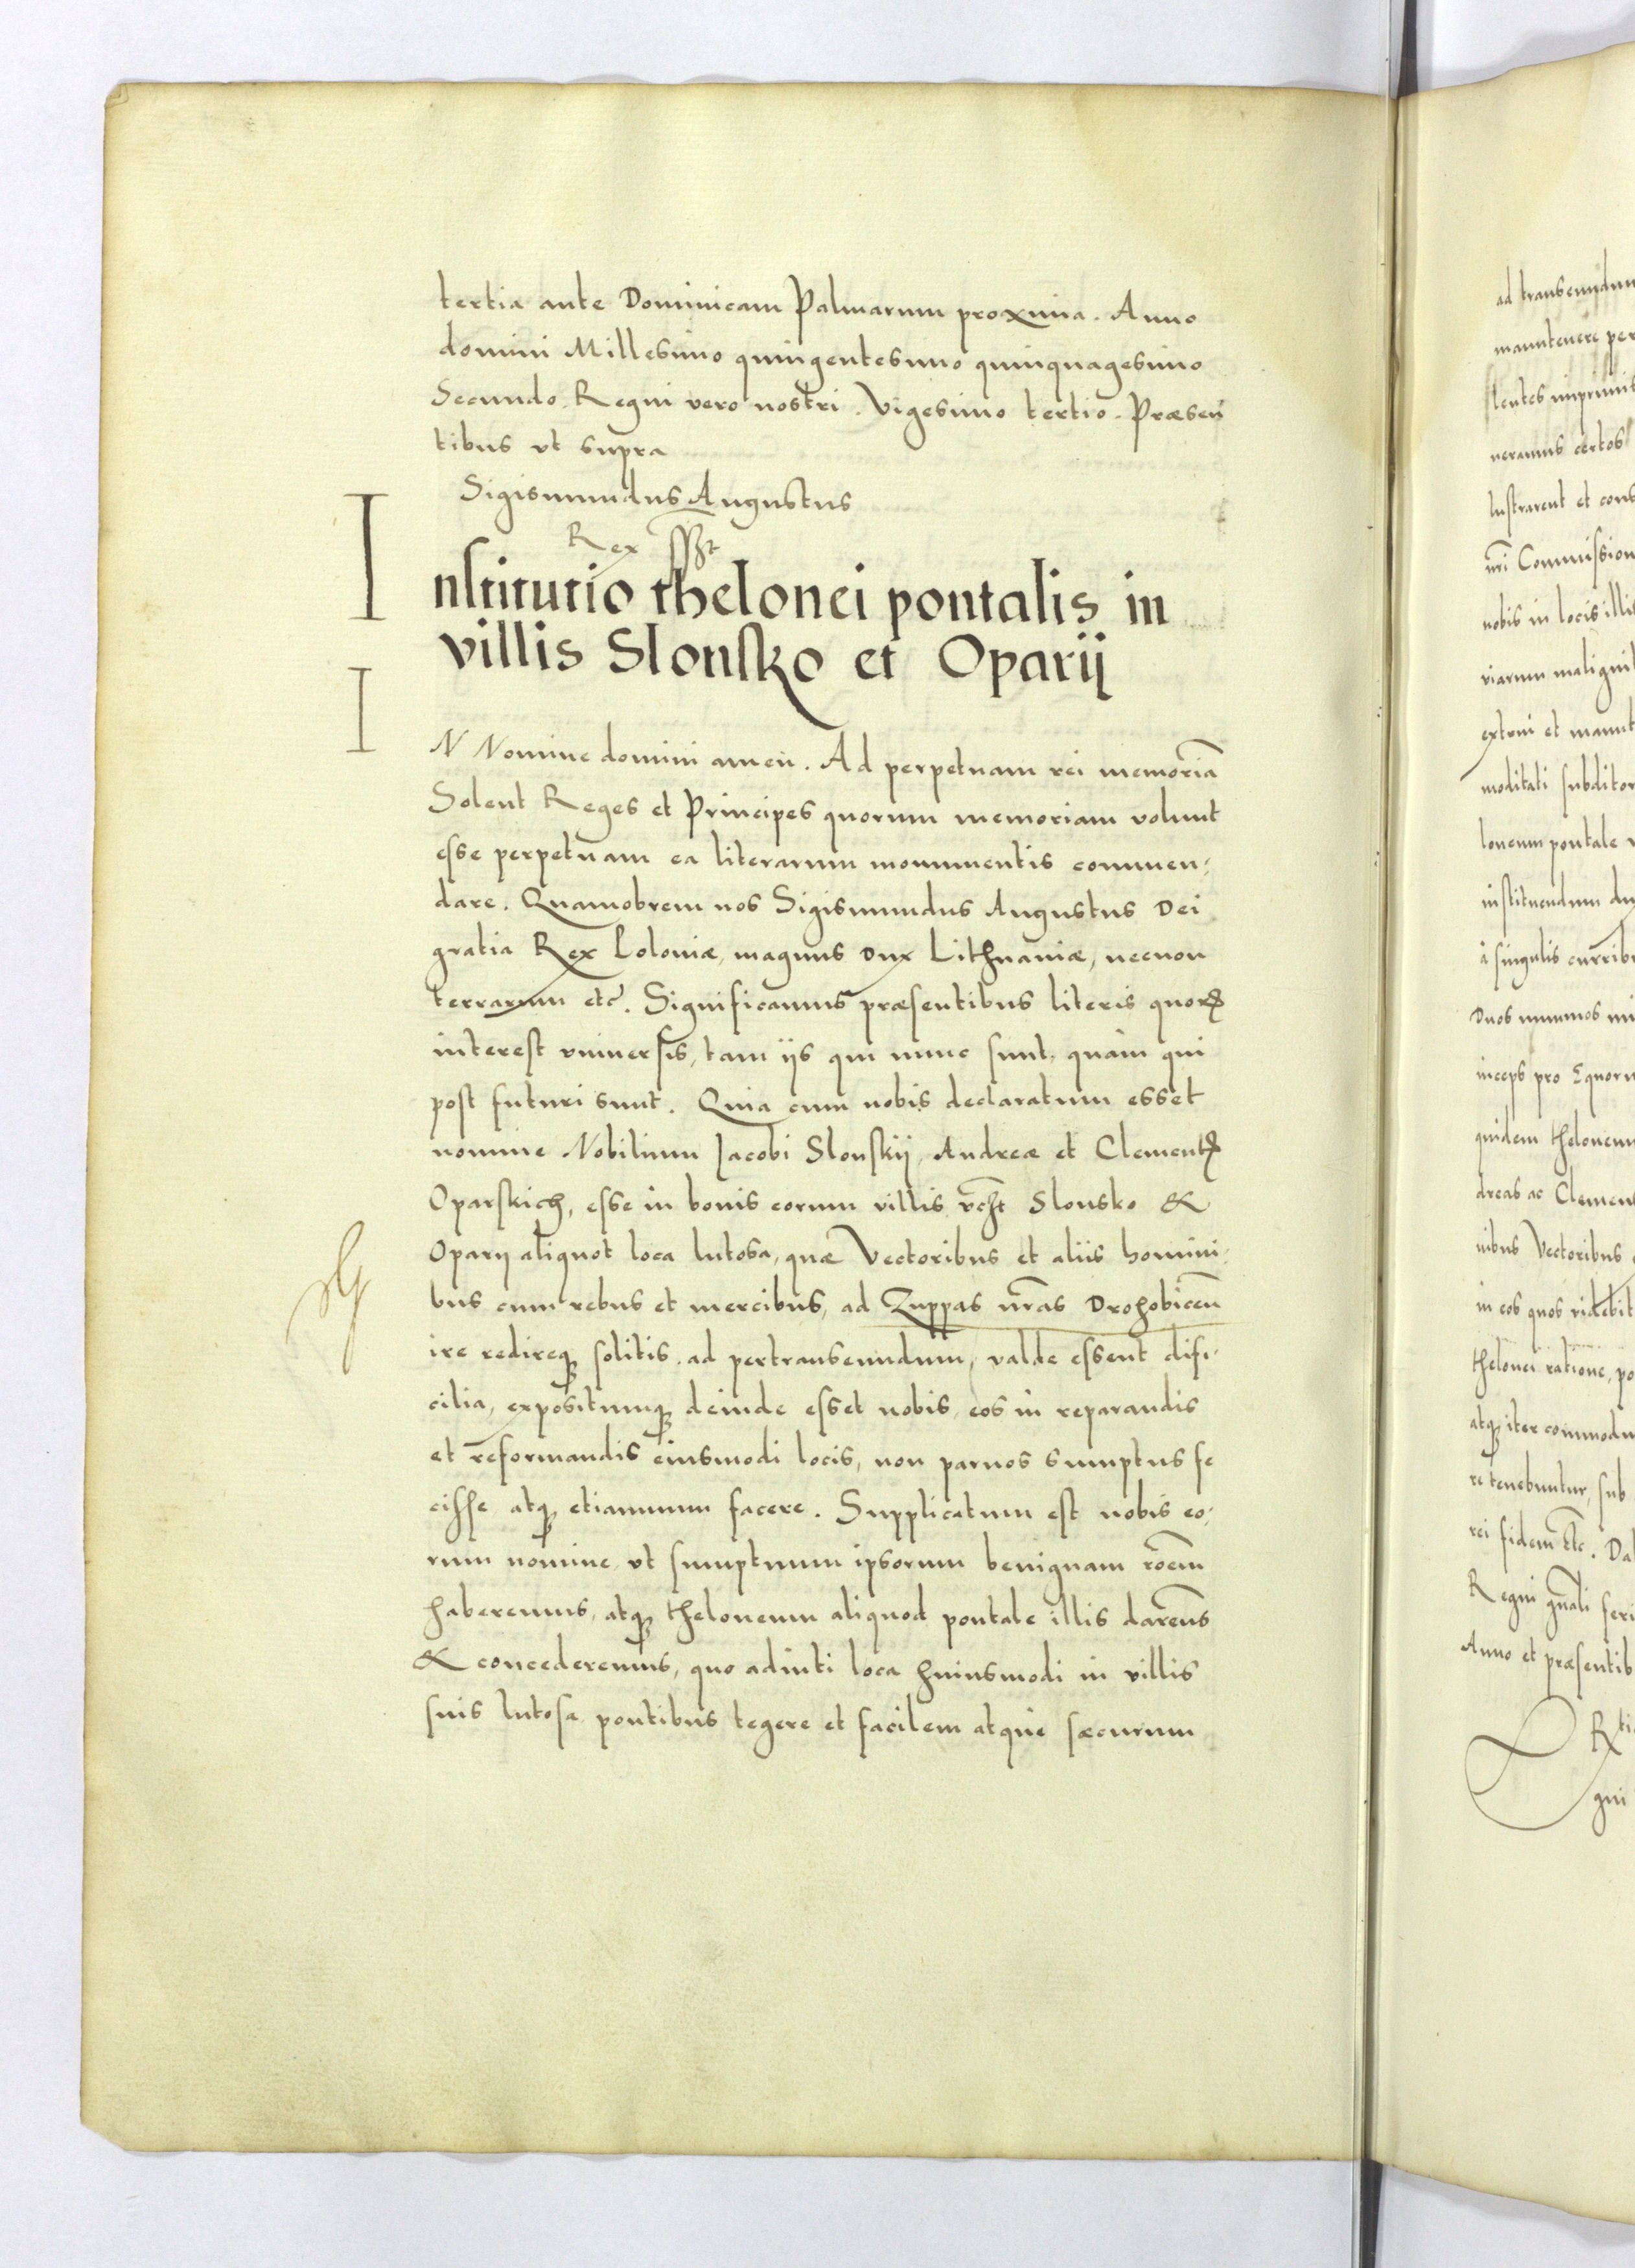 tertia ante Dominicam Palmarum proxima. Anno
domini Millesimo quingentesimo quinquagesimo
Secundo. Regni vero nostri. Vigesimo tertio. Præsen̄
tibus vt supra
Sigismundus Augustus
Rex sst
Institutio thelonei pontalis in
villis Slonsko et Oparij
IN Nomine domini amen. Ad perpetuam rei memoriā
Solent Reges et Principes quorum memoriam volunt
esse perpetuam ea literarum monumentis commen,
dare. Quamobrem nos Sigismundus Augustus Dei
gratia Rex Poloniæ, magnus Dux Lithuaniæ, necnon
terrarum etc̄. Significamus præsentibus literis quorꝝ
interest vniuersis, tam ijs qui nunc sunt, quàm qui
post futuri sunt. Quia cum nobis declaratum esset
nomine Nobilium Jacobi Slonskij, Andreæ et Clementꝭ
Oparskich, esse in bonis eorum villis vꝫt Slonsko &
Oparij aliquot loca lutosa, quæ Vectoribus et aliis homini,
bus cum rebus et mercibus, ad Zuppas nr̄as Drohobicen̄
ire redireqꝫ solitis. ad pertranseundum, valde essent difi,
cilia, expositumqꝫ deinde esset nobis, eos in reparandis
et reformandis eiusmodi locis, non paruos sumptus fe
cisse atqꝫ etiamnum facere. Supplicatum est nobis eo,
rum nomine vt sumptuum ipsorum benignam rōem
haberemus, atqꝫ theloneum aliquod pontale illis darem̄s
& concederemus, quo adiuti loca huiusmodi in villis
suis lutosa pontibus tegere et facilem atque sæcurum
ad transeundum
manutenere per
lentes imprimis
neramus certos
lustrarent et cons
nr̄i Commission
nobis in locis illis
viarum malignit
extrui et manut
moditati subditor
loneum pontale
instituendum du
à singulis currib
Duos nummos mi
inceps pro Equoru
quidem theloneum
dreas ac Clemen
nibus Vectoribus
in eos quos videbit
thelonei ratione, po
atqꝫ iter commodu
re tenebuntur, sub
rei fidem etc̄. Da
Regni gn̄ali feri
Anno et præsentib
Rti
gni